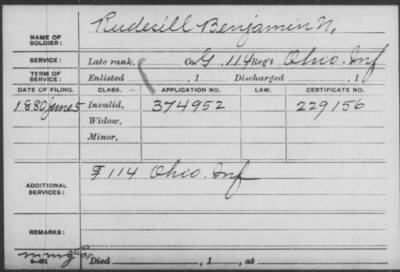 NAME OF SOLDIER: Rudesill Benjamin N.
SERVICE: Late rank, Co G. 114 Reg't Ohio. Inf
TERM OF SERVICE: Enlisted , 1 Discharged , 1
DATE OF FILING. CLASS. APPLICATION NO. LAW. CERTIFICATE NO.
1880 June 5 Invalid, 374952 229156
Widow,
Minor,
ADDITIONAL SERVICES: F 114 Ohio. Inf
REMARKS:
Died , 1 , at